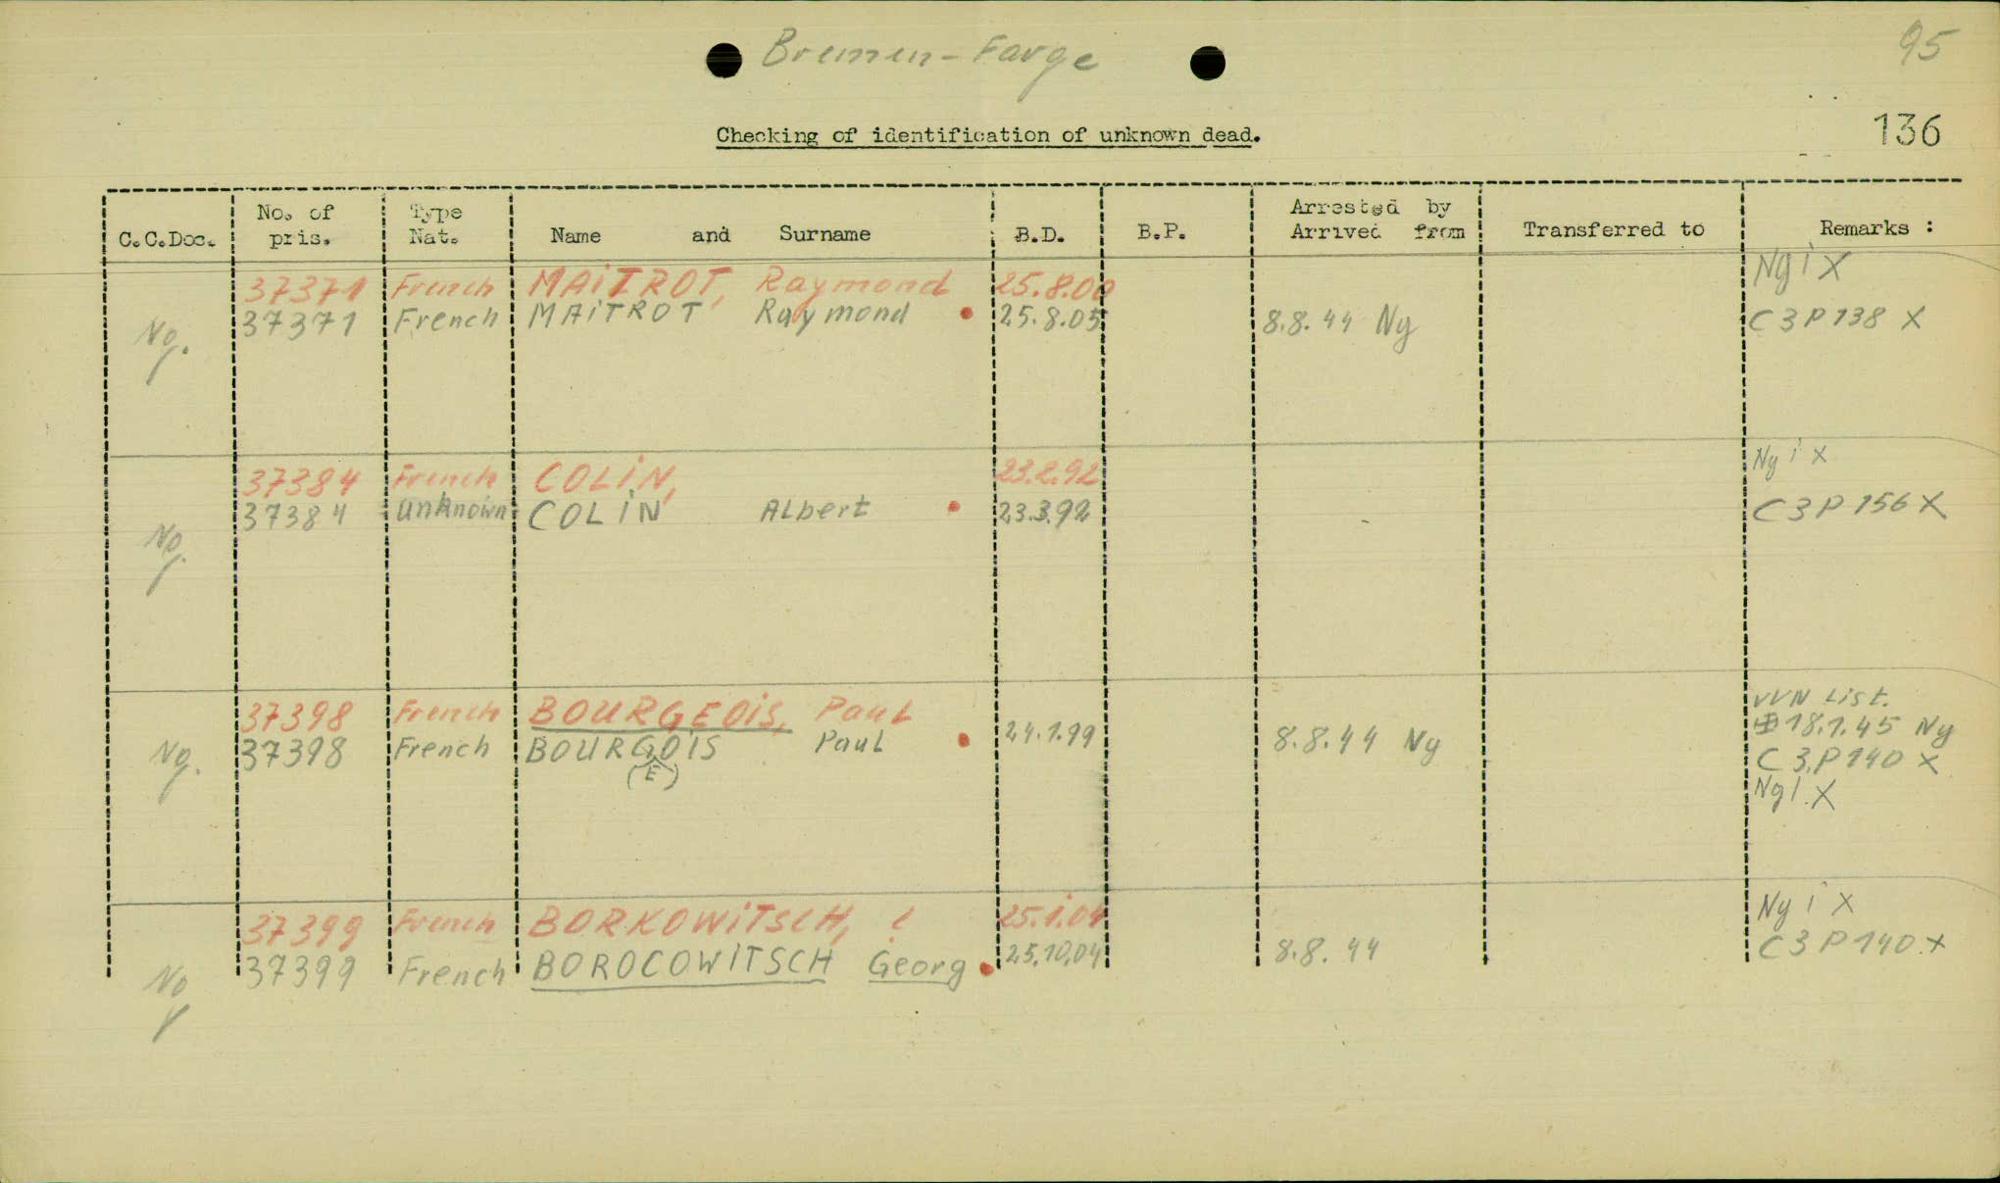 95
Bremen-Farge
136
Checking of identification of unknown dead.
C.C.Doc. No. of pris. Type Nat. Name and Surname B.D. B.P. Arrested by Arrived from Transferred to Remarks :
37371 French MAITROT, Raymond 25.8.00 Ng i X
Ng. 37371 French MAITROT Raymond 25.8.05 8.8.44 Ng C3P138 X
37384 French COLIN, 23.2.92 Ng i X
Ng. 37384 unknown COLIN Albert 23.3.92 C3P156 X
37398 French BOURGEOIS, Paul VVN List.
18.1.45 Ng
Ng. 37398 French BOURGOIS Paul 24.1.99 8.8.44 Ng C3.P140 X
(E)
Ng I. X
37399 French BORKOWITSCH, 25.1.04 Ng i X
Ng 37399 French BOROCOWITSCH Georg 25.10.04 8.8.44 C3P140.X